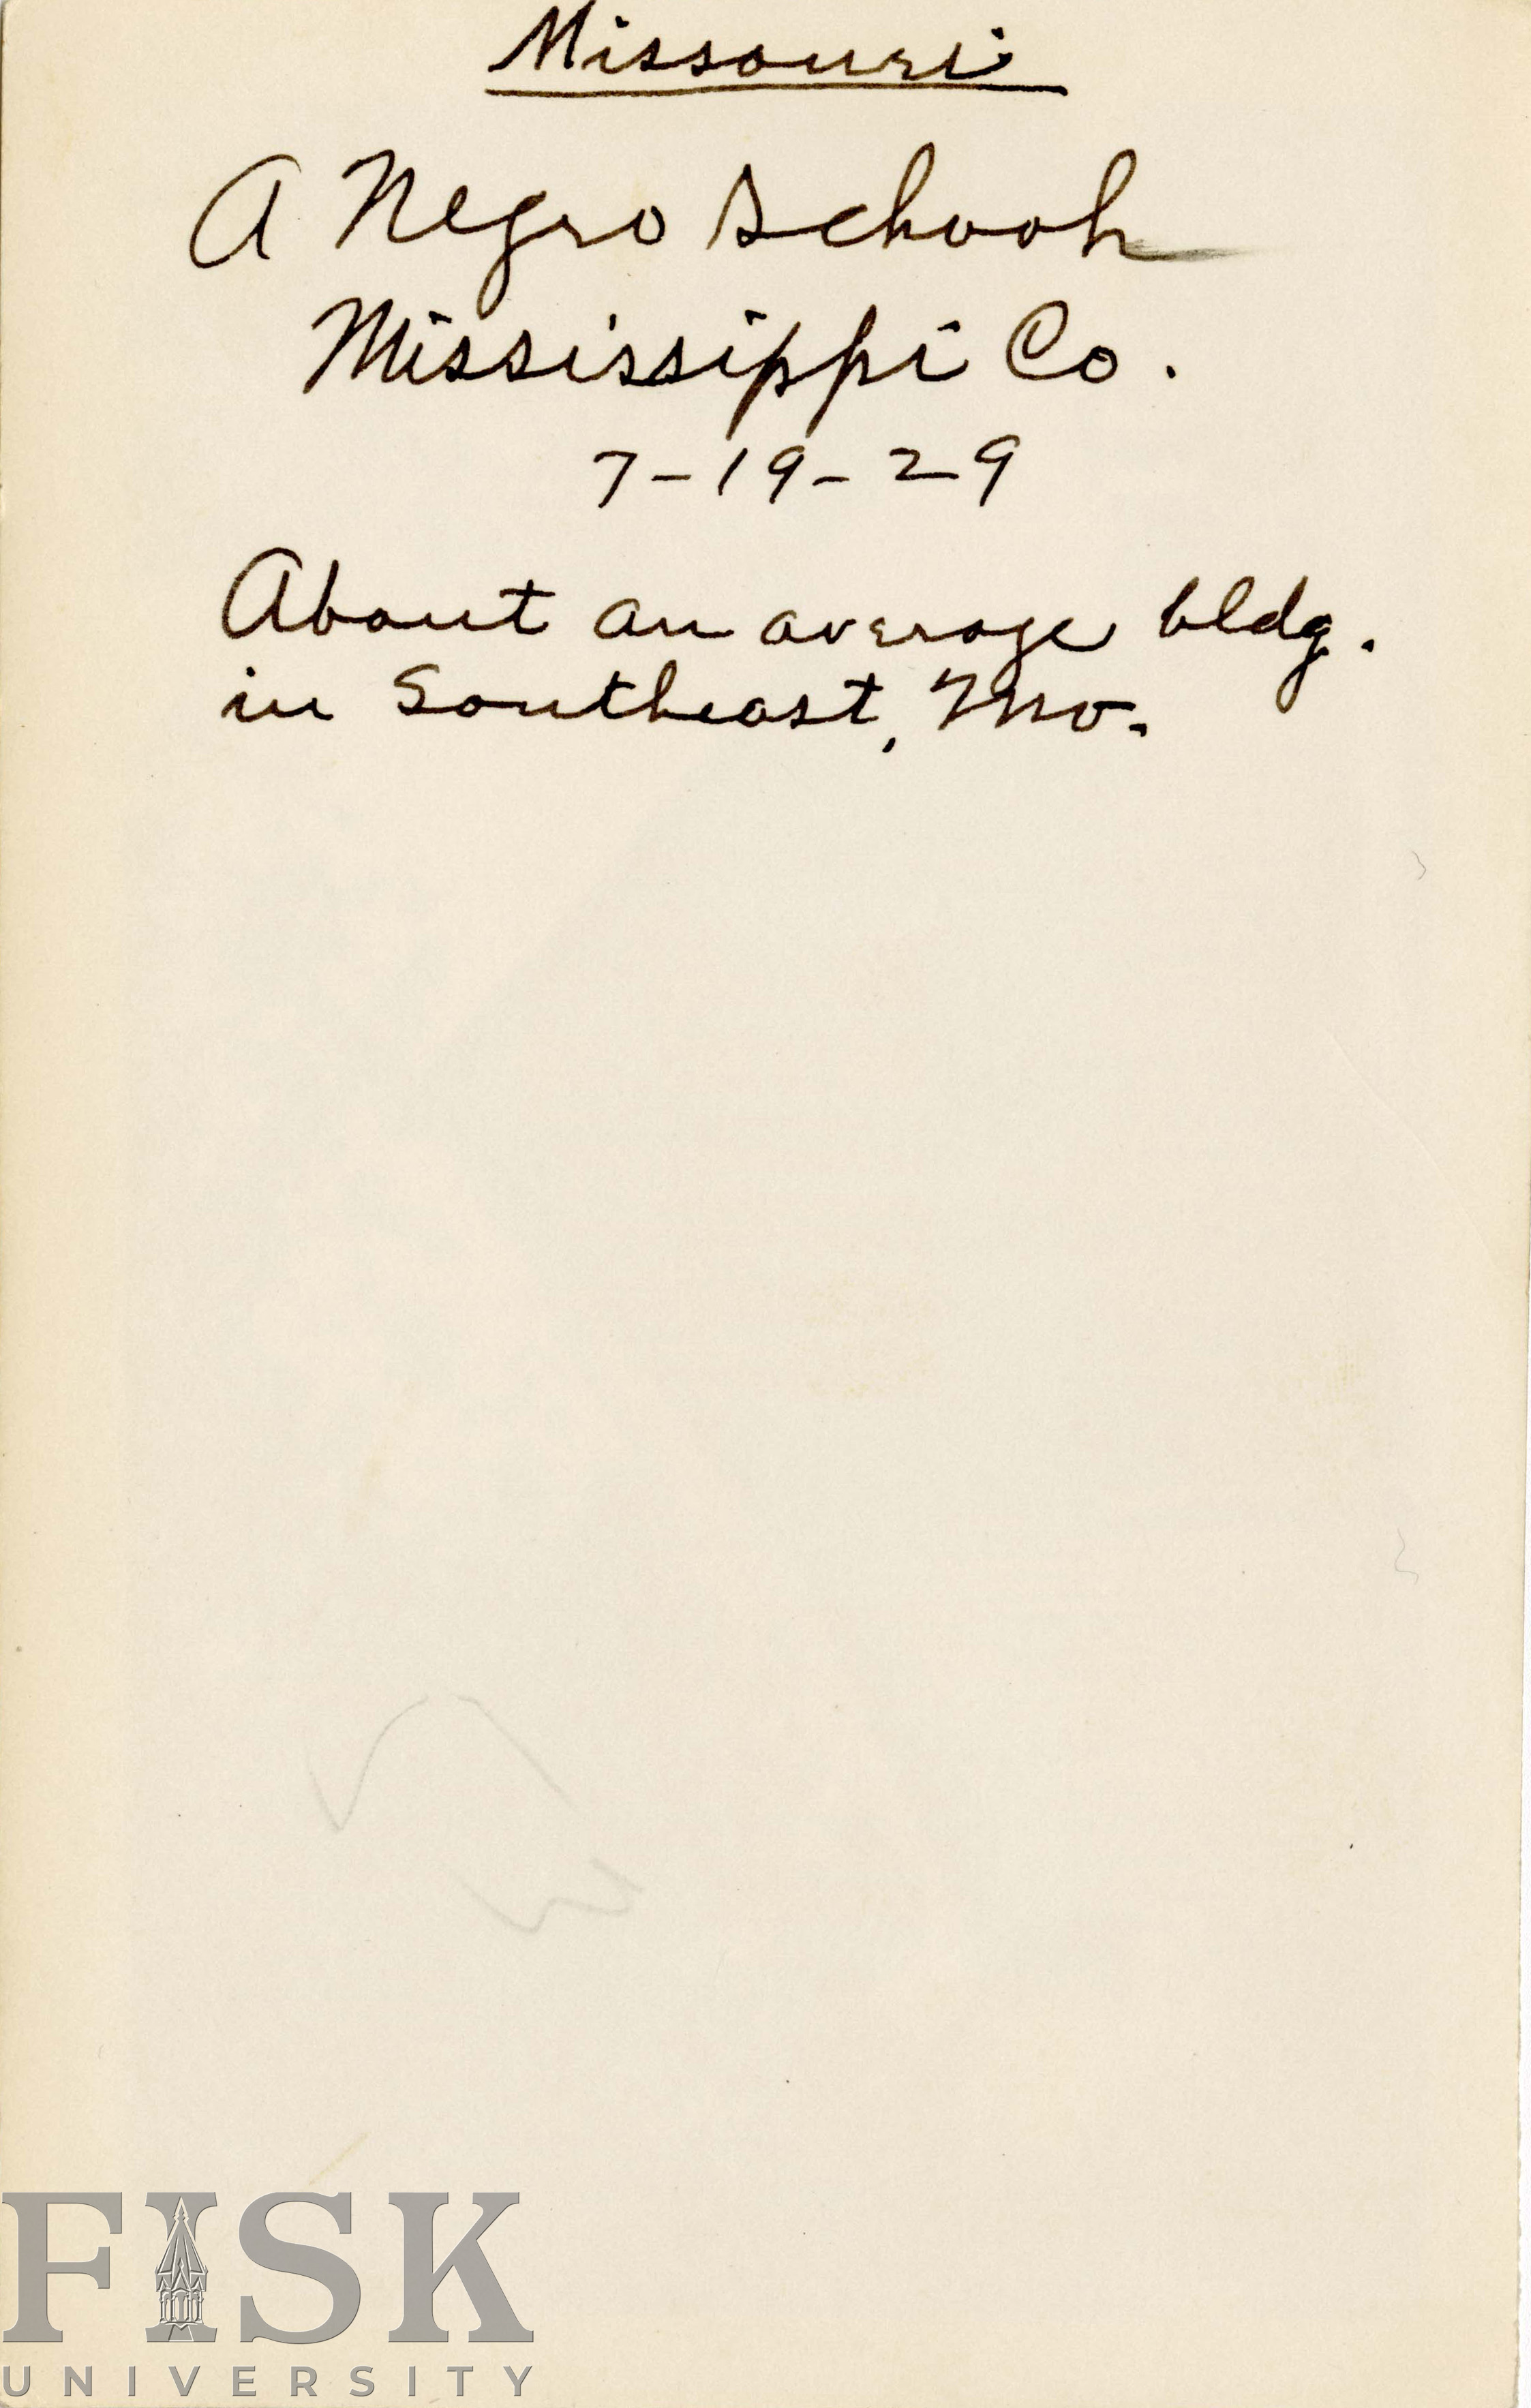 Missouri
A Negro School
Mississippi Co.
7-19-29
About an average bldg.
in Southeast, Mo.
FISK
UNIVERSITY